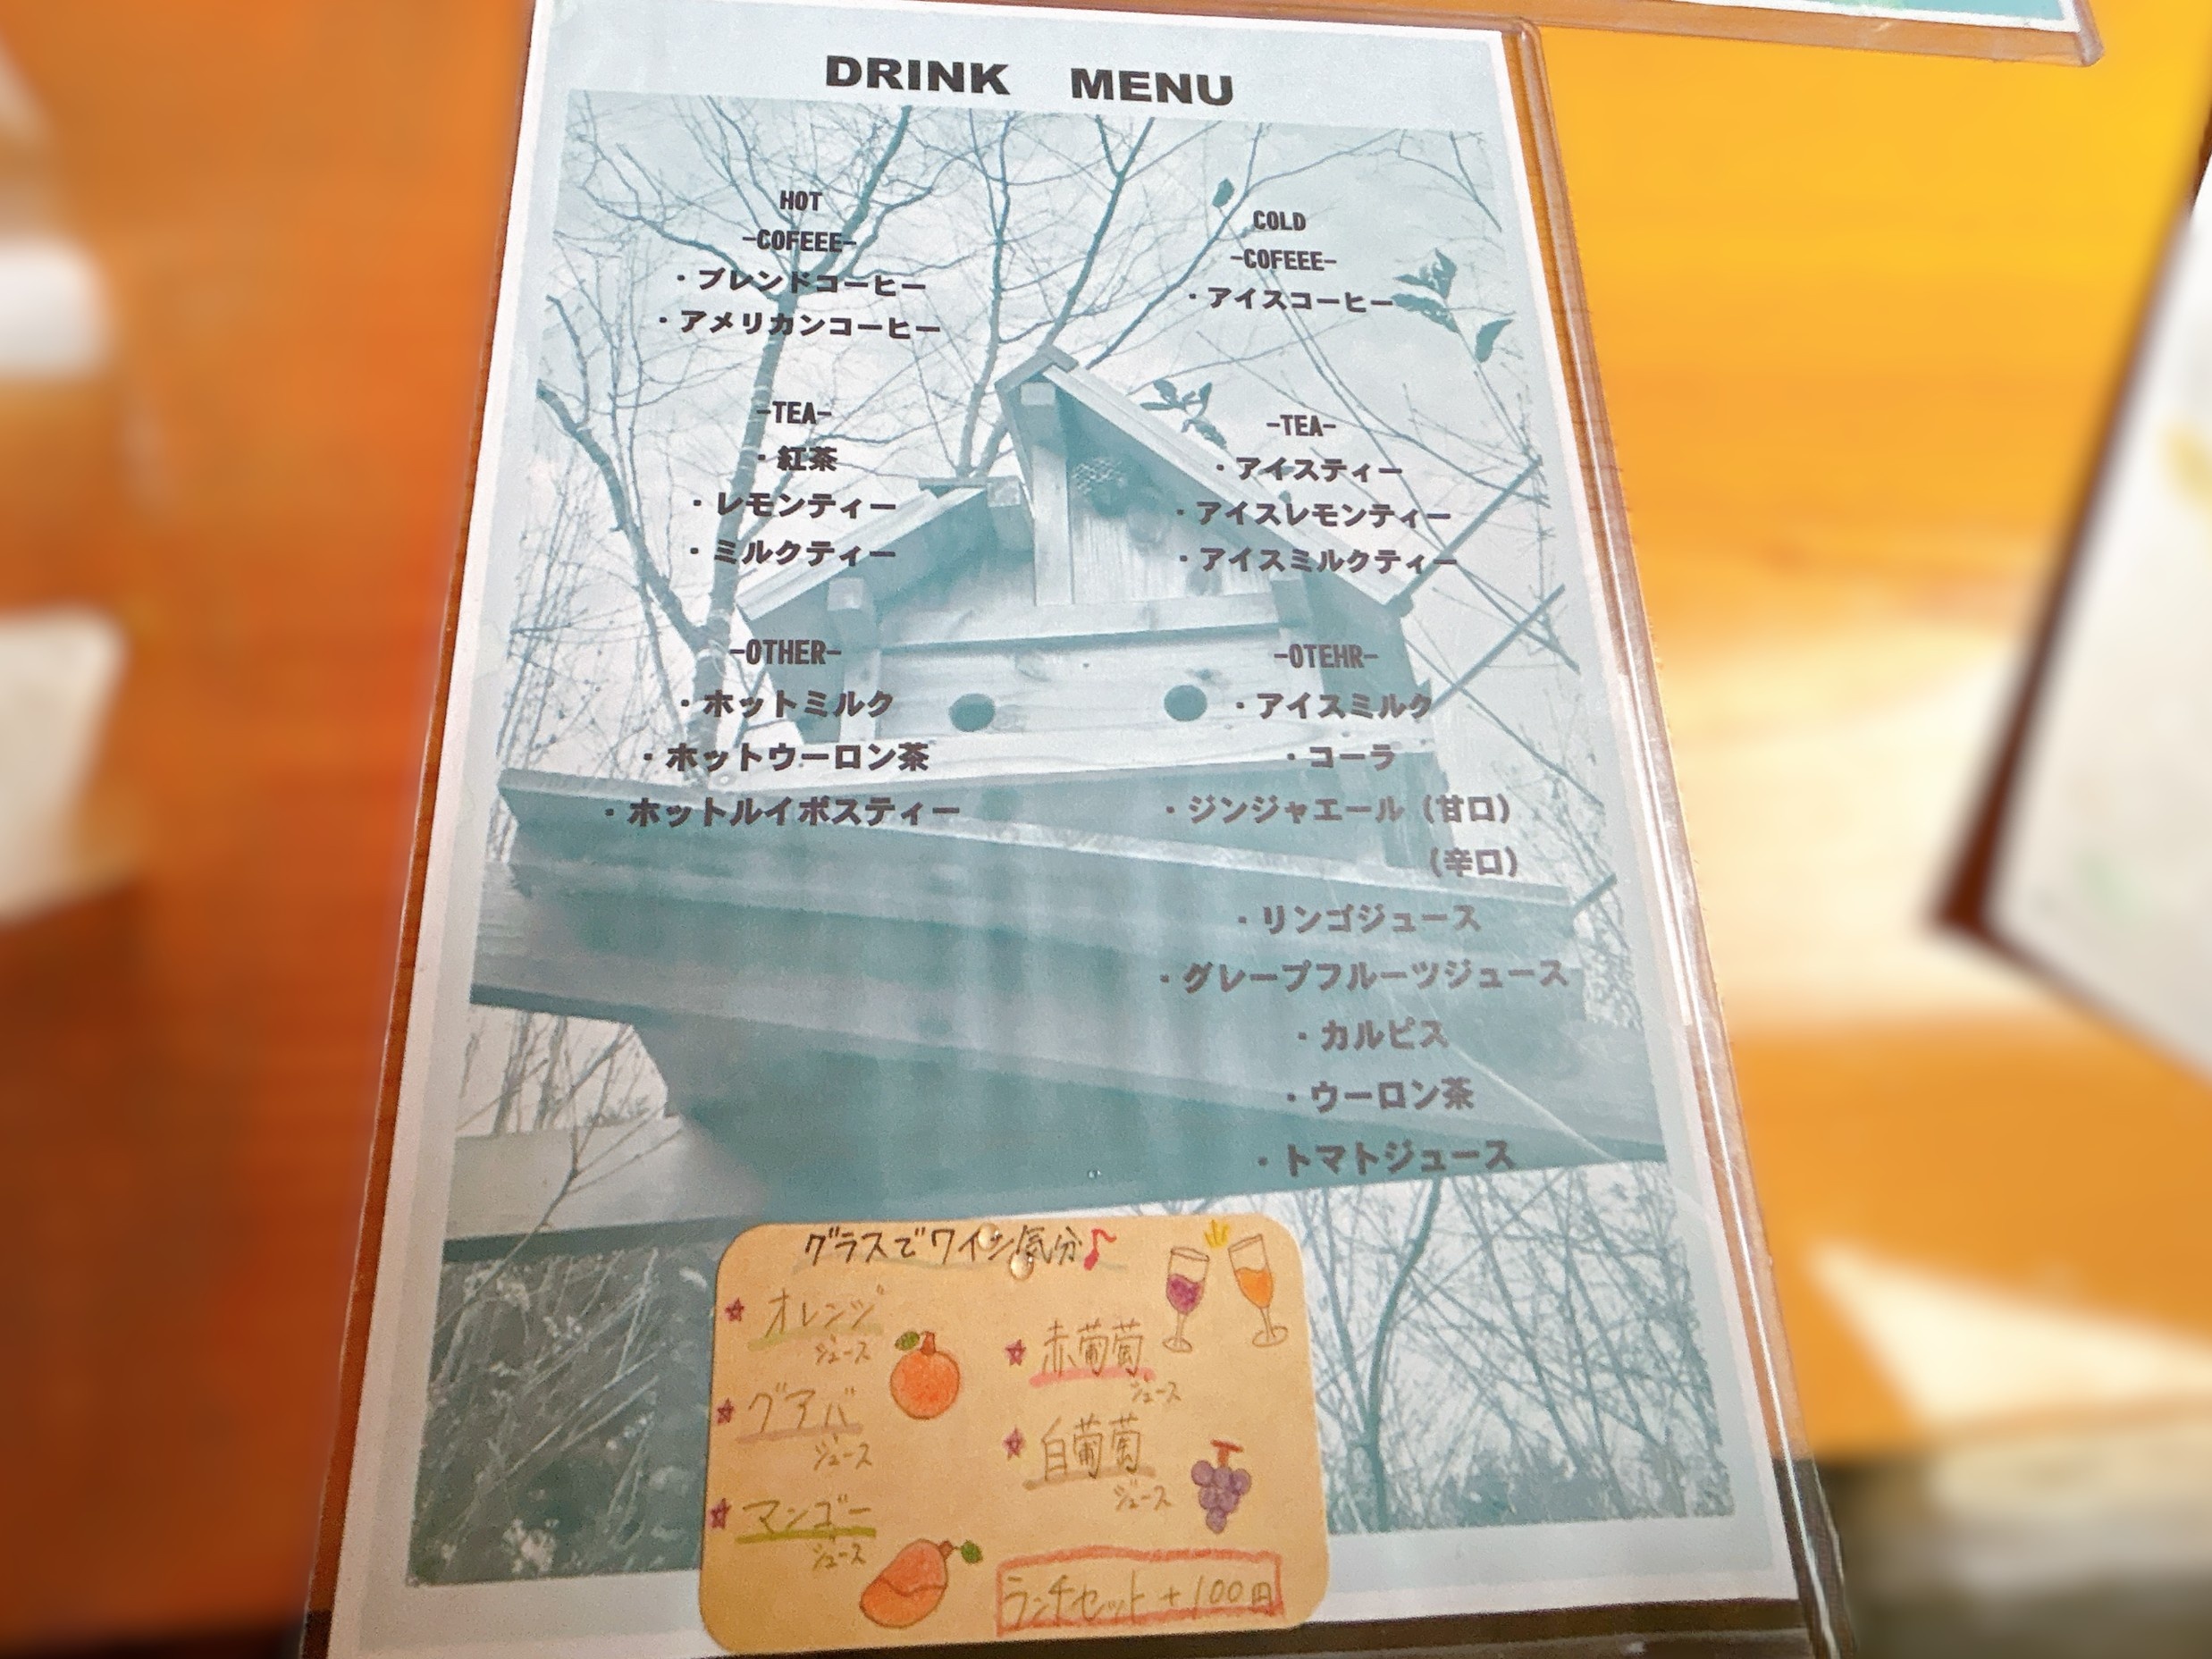 DRINK MENU
HOT
-COFEEE-
・ブレンドコーヒー
・アメリカンコーヒー
-TEA-
・紅茶
・レモンティー
・ミルクティー
-OTHER-
・ホットミルク
・ホットウーロン茶
・ホットルイボスティー
COLD
-COFEEE-
・アイスコーヒー
-TEA-
・アイスティー
・アイスレモンティー
・アイスミルクティー
-OTEHR-
・アイスミルク
・コーラ
・ジンジャエール（甘口）
（辛口）
・リンゴジュース
・グレープフルーツジュース
・カルピス
・ウーロン茶
・トマトジュース
グラスでワイン気分♪
☆オレンジ
ジュース
☆グアバ
ジュース
☆マンゴー
ジュース
☆赤葡萄
ジュース
☆白葡萄
ジュース
ランチセット +100円